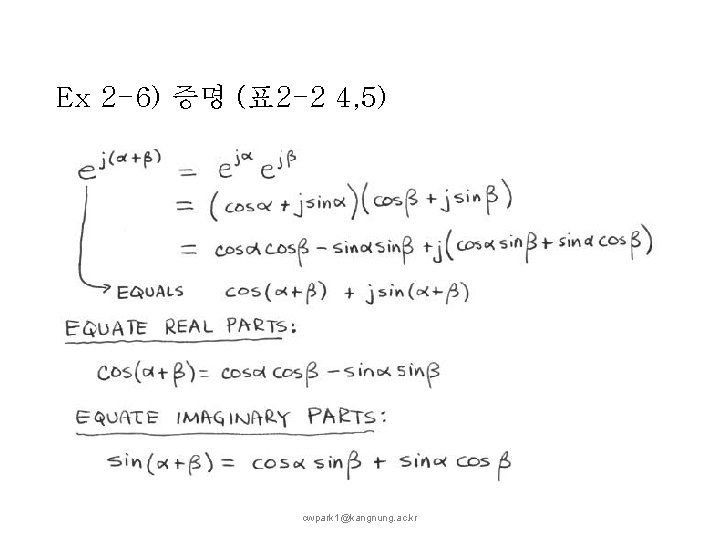 Ex 2-6) 증명 (표2-2 4,5)
e^{j(α+β)} = e^{jα} e^{jβ}
= (cosα + jsinα)(cosβ + jsinβ)
= cosαcosβ - sinαsinβ + j(cosαsinβ + sinαcosβ)
→ EQUALS cos(α+β) + jsin(α+β)
EQUATE REAL PARTS:
cos(α+β) = cosαcosβ - sinαsinβ
EQUATE IMAGINARY PARTS:
sin(α+β) = cosαsinβ + sinαcosβ
cwpark1@kangnung.ac.kr